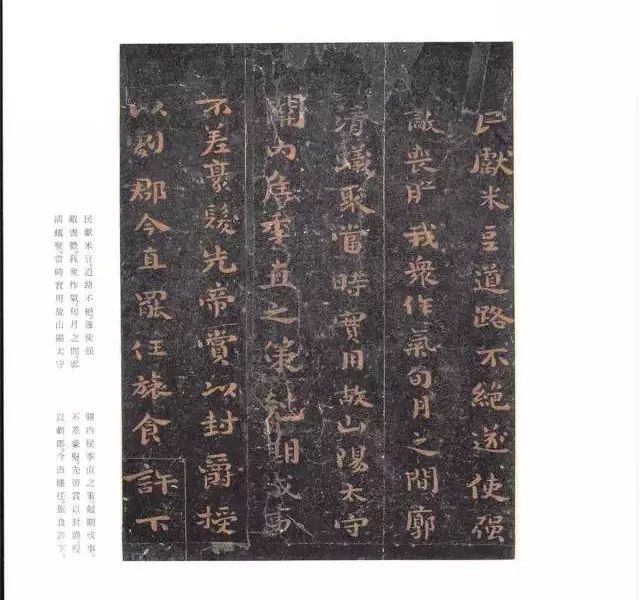 民獻米豆道路不絕遂使强
敵喪膽我衆作氣旬月之間廓
清蟻聚當時實用故山陽太守
關内侯季直之策尅期成事
不差豪髮先帝賞以封爵授
以劇郡今直罷任旅食許下
民獻米豆,道路不絕,遂使强
敵喪膽,我衆作氣,旬月之間,廓
清蟻聚。當時實用故山陽太守
關内侯季直之策,尅期成事,
不差豪髮。先帝賞以封爵,授
以劇郡。今直罷任,旅食許下。